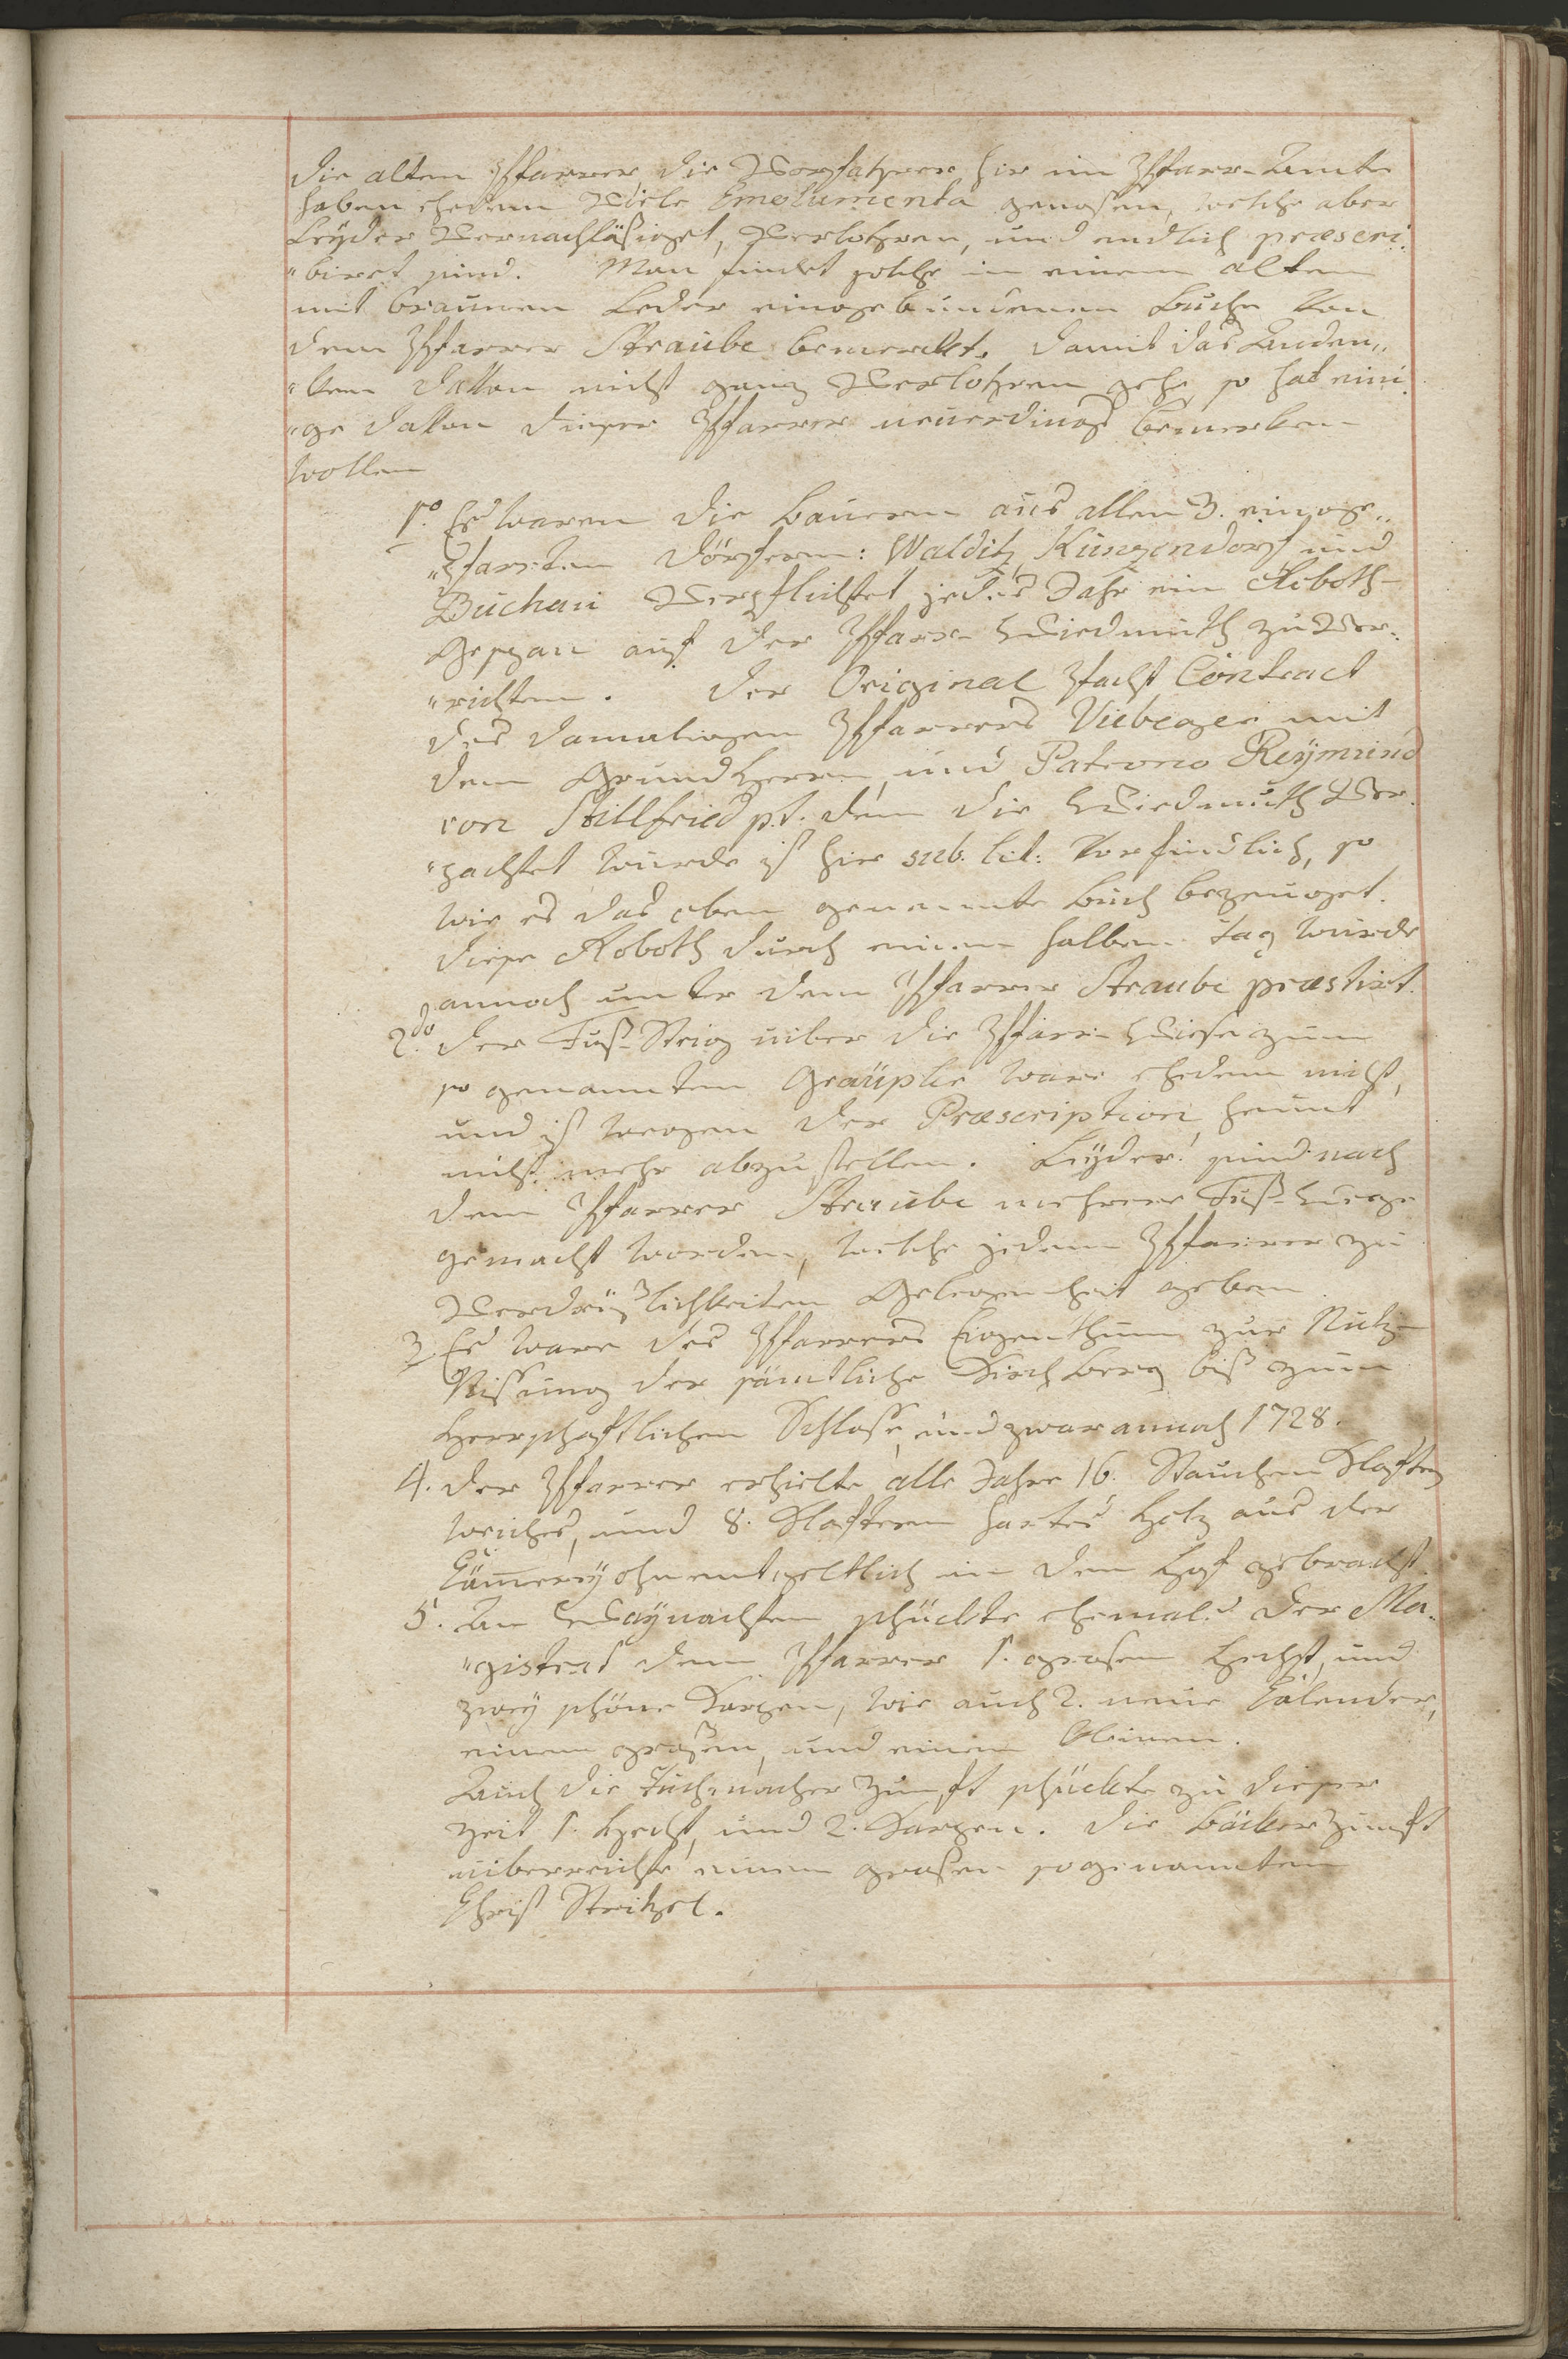 Die alten Pfarrer die Vorfahrer hir im Pfarr-Amte
haben ehedem Viele Emolumenta genoßen, welche aber
Leyder Vernachläßiget, Verlohren, und endlich præscri„
„biret sind. Man findet solche in einem alten
mit braunen Leder eingebundenen Buche von
dem Pfarrer Straube bemerckt. Damit das Anden„
„ken davon nicht ganz Verlohren gehe, so hat eini„
„ge davon dieser Pfarrer neuerdings bemerken
wollen
1o. Es waren die Bauern aus allen 3. einge„
„Pfarrten Dörfern: Walditz, Kunzendorf und
Buchau Verpflichtet jedes Jahr ein Roboth-
Gespan auf der Pfarr-Wiedmuth zu Ver„
„richten. Der Original Pacht Contract
des damaligen Pfarrers Vieberger mit
dem Grundherrn, und Patrono Reymund
von Stillfried p.t. dem die Wiedmuth Ver„
„pachtet wurde ist hier sub. lit: Vorfindlich, so
wie es das oben genennte Buch bezeuget.
Diese Roboth durch einen halben Tag wurde
annoch unter dem Pfarrer Straube præstirt.
2do. Der Fuß-Steig uiber die Pfarr-Wiese zum
so genannten Gräupler ware ehedem nicht,
und ist wegen der Præscription heunt
nicht mehr abzustellen. Leyder! sind nach
dem Pfarrer Straube mehrere Fuß-Weege
gemacht worden, welche jedem Pfarrer zu
Verdrüßlichkeiten Gelegenheit geben.
3. Es ware des Pfarrers Eigenthum zur Nutz-
Nissung der sämtliche Kirchberg biß zum
Herrschaftlichen Schloße, und zwar annoch 1728.
4. Der Pfarrer erhielte alle Jahre 16. Klaftern
weiches, und 8. Klaftern hartes Holz aus der
Cämerey ohnentgeltlich in den Hof gebracht.
5. An Waynachten schückte ehemals der Ma„
„gistrat dem Pfarrer 1. großen Hecht, und
zwey schöne Karpen, wie auch 2. neue Calender,
einen großen, und einen kleinen.
Auch die Tuchmacher Zunft schückte zu dieser
Zeit 1. Hecht, und 2. Karpen. Die Bäcker Zunft
uiberreichte einen großen sogenannten
Christ Stritzel.